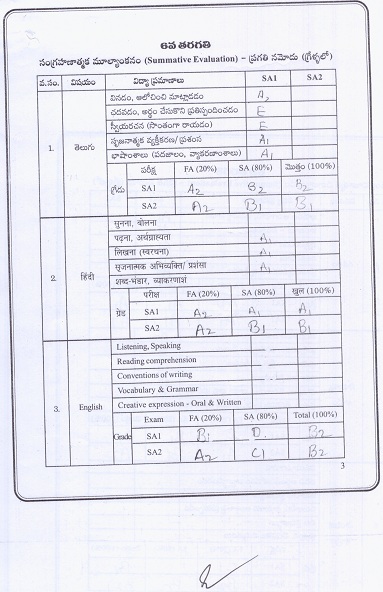 6వ తరగతి
సంగ్రహణాత్మక మూల్యాంకనం (Summative Evaluation) – ప్రగతి నమోదు (గ్రేళ్ళలో)
వ.సం. విషయం విద్యా ప్రమాణాలు SA1 SA2
వినడం, ఆలోచించి మాట్లాడడం A2
చదవడం, అర్థం చేసుకొని ప్రతిస్పందించడం E
స్వీయరచన (సొంతంగా రాయడం) E
1. తెలుగు సృజనాత్మక వ్యక్తీకరణ/ ప్రశంస A1
భాషాంశాలు (పదజాలం, వ్యాకరణాంశాలు) A1
పరీక్ష FA (20%) SA (80%) మొత్తం (100%)
గ్రేడు SA1 A2 B2 B2
SA2 A2 B1 B1
सुनना, बोलना
पढ़ना, अर्थग्राह्यता A1
लिखना (स्वरचना) A1
सृजनात्मक अभिव्यक्ति/ प्रशंसा A1
शब्द-भंडार, व्याकरणाशं
2. हिंदी परीक्ष FA (20%) SA (80%) खुल (100%)
ग्रेड SA1 A2 A1 A1
SA2 A2 B1 B1
Listening, Speaking
Reading comprehension
Conventions of writing
Vocabulary & Grammar
3. English Creative expression - Oral & Written
Exam FA (20%) SA (80%) Total (100%)
Grade SA1 B1 D B2
SA2 A2 C1 B2
3